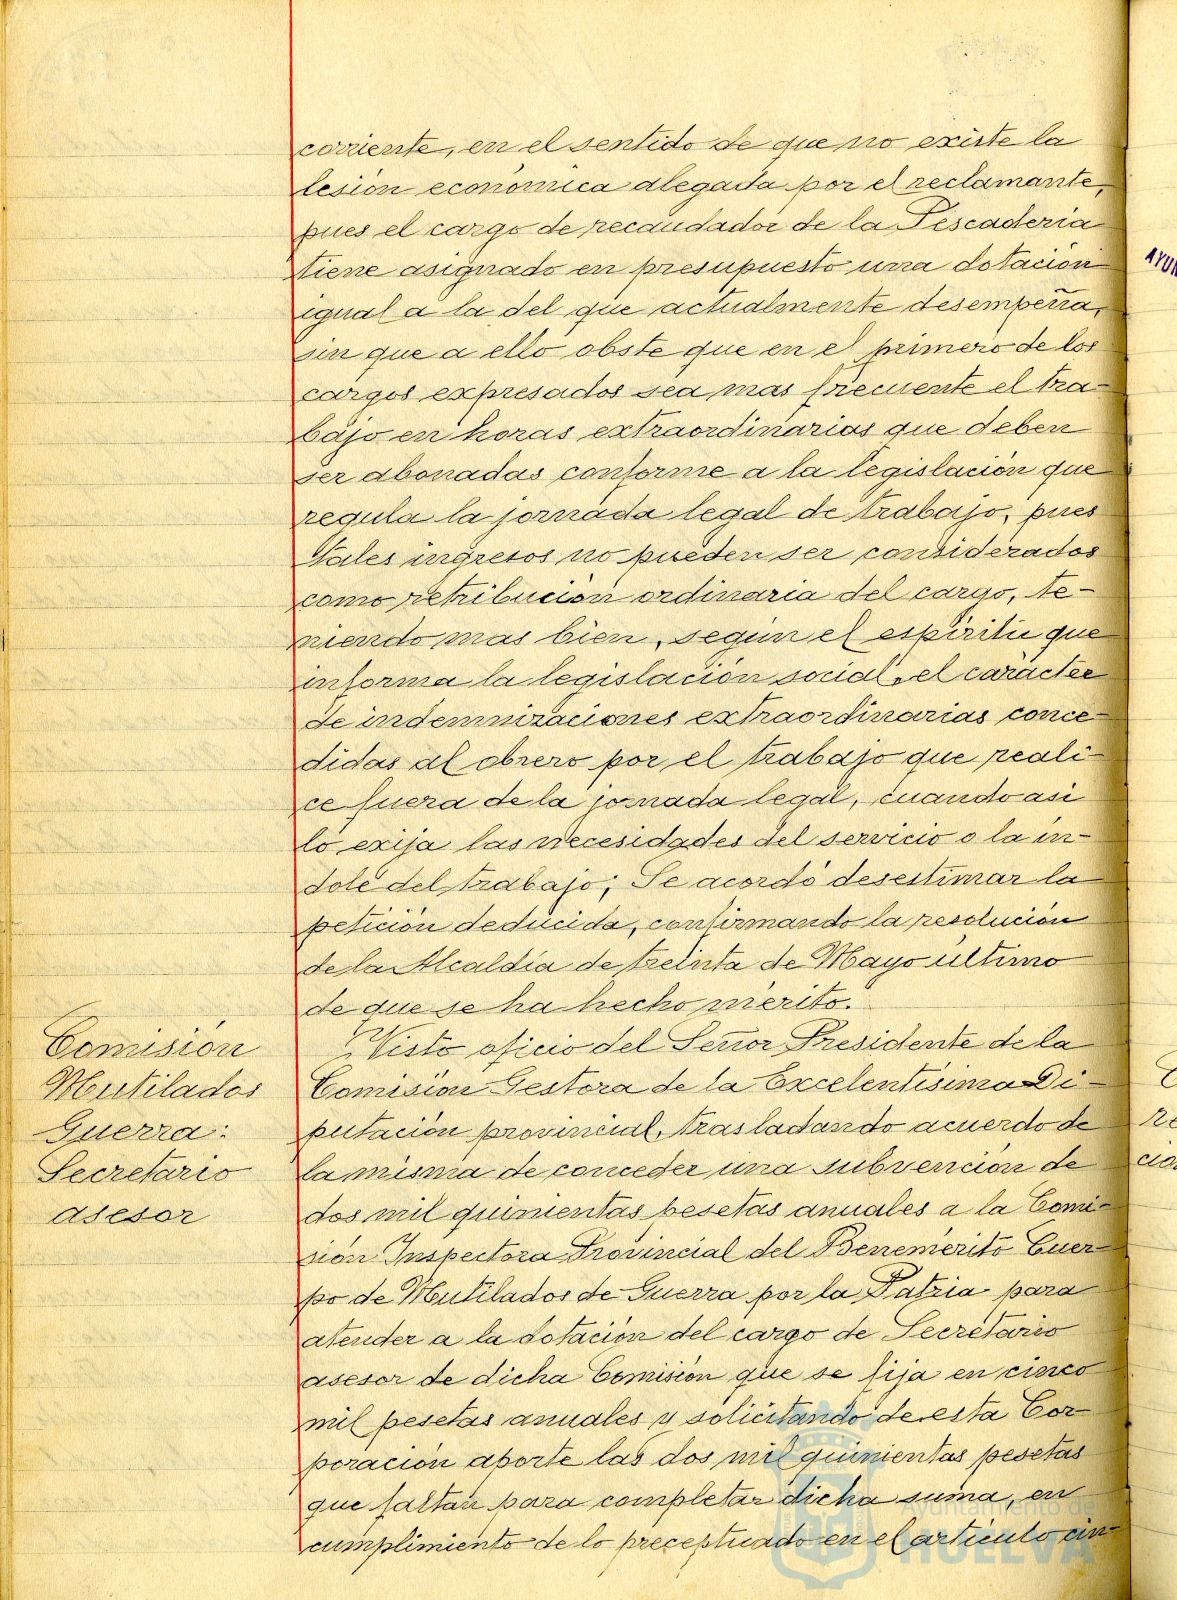 corriente, en el sentido de que no existe la
lesión económica alegada por el reclamante,
pues el cargo de recaudador de la Pescaderia
tiene asignado en presupuesto una dotación
igual a la del que actualmente desempeña,
sin que a ello obste que en el primero de los
cargos expresados sea mas frecuente el tra-
bajo en horas extraordinarias que deben
ser abonadas conforme a la legislación que
regula la jornada legal de trabajo, pues
tales ingresos no pueden ser considerados
como retribución ordinaria del cargo, te-
niendo mas bien, según el espíritu que
informa la legislación social, el carácter
de indemnizaciones extraordinarias conce-
didas al obrero por el trabajo que reali-
ce fuera de la jornada legal, cuando asi
lo exija las necesidades del servicio o la in-
dole del trabajo; Se acordó desestimar la
petición deducida, confirmando la resolución
de la Alcaldía de treinta de Mayo último
de que se ha hecho mérito.
Comisión
Mutilados
Guerra:
Secretario
asesor
Visto oficio del Señor Presidente de la
Comisión Gestora de la Excelentísima Di-
putación provincial, trasladando acuerdo de
la misma de conceder una subvención de
dos mil quinientas pesetas anuales a la Comi-
sión Inspectora Provincial del Benemérito Cuer-
po de Mutilados de Guerra por la Patria para
atender a la dotación del cargo de Secretario
asesor de dicha Comisión que se fija en cinco
mil pesetas anuales y solicitando de esta Cor-
poración aporte las dos mil quinientas pesetas
que faltan para completar dicha suma, en
cumplimiento de lo preceptuado en el artículo cin-
Ayuntamiento de
HUELVA
AYUN